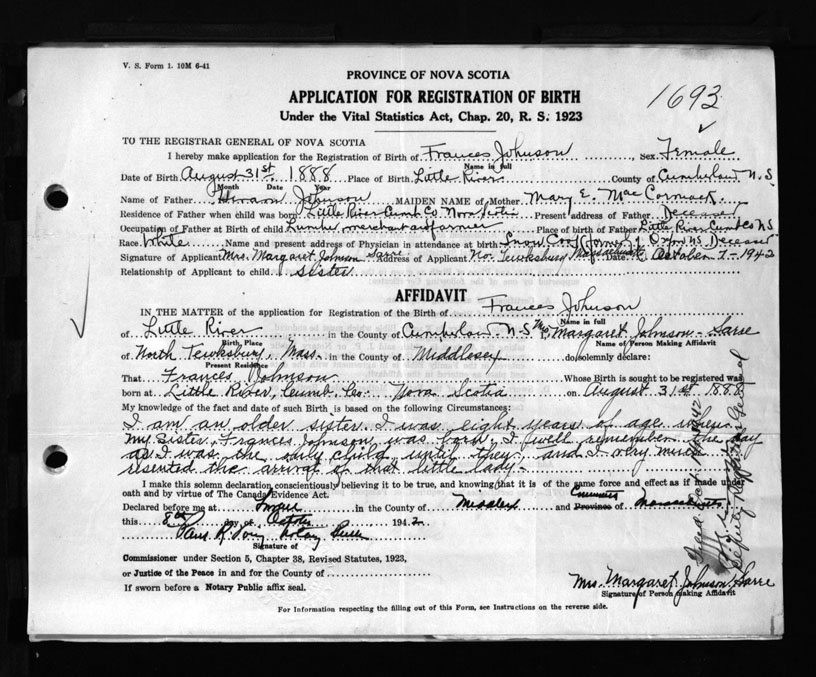 V. S. Form 1. 10M 6-41
PROVINCE OF NOVA SCOTIA
1693
APPLICATION FOR REGISTRATION OF BIRTH
Under the Vital Statistics Act, Chap. 20, R. S. 1923
TO THE REGISTRAR GENERAL OF NOVA SCOTIA
I hereby make application for the Registration of Birth of Frances Johnson, Sex Female
Name in full
Date of Birth August 31st 1888 Place of Birth Little River County of Cumberland N.S.
Month Date Year
Name of Father Johnson MAIDEN NAME of Mother Mary E. MacCormack
Residence of Father when child was born Little River Cumb. Co. Nova Scotia Present address of Father Deceased
Occupation of Father at Birth of child Lumber merchant and farmer Place of birth of Father Little River Cumb Co N.S.
Race White Name and present address of Physician in attendance at birth N.S. Deceased
Signature of Applicant Mrs. Margaret Johnson Sarre Address of Applicant No. Tewksbury Massachusetts Date October 7-1942
Relationship of Applicant to child Sister
AFFIDAVIT
IN THE MATTER of the application for Registration of the Birth of Frances Johnson
Name in full
of Little River in the County of Cumberland N.S. Mrs. Margaret Johnson-Sarre
Birth Place Name of Person Making Affidavit
of North Tewksbury, Mass. in the County of Middlesex do solemnly declare:
Present Residence
That Frances Johnson Whose Birth is sought to be registered was
born at Little River, Cumb. Co. Nova Scotia on August 31st 1888
My knowledge of the fact and date of such Birth is based on the following Circumstances:
I am an older sister. I was eight years of age when
my sister, Frances Johnson was born, I well remember the day
as I was the only child until then, and I very much
resented the arrival of that little lady.
I make this solemn declaration conscientiously believing it to be true, and knowing that it is of the same force and effect as if made under
oath and by virtue of The Canada Evidence Act.
Declared before me at in the County of Middlesex and Province of Massachusetts
this 8th day of October 1942
Paul R. Notary Public
Signature of
Commissioner under Section 5, Chapter 38, Revised Statutes, 1923,
or Justice of the Peace in and for the County of
If sworn before a Notary Public affix seal.
Mrs. Margaret Johnson Sarre
Signature of Person making Affidavit
For Information respecting the filling out of this Form, see Instructions on the reverse side.
Deputy Registrar General